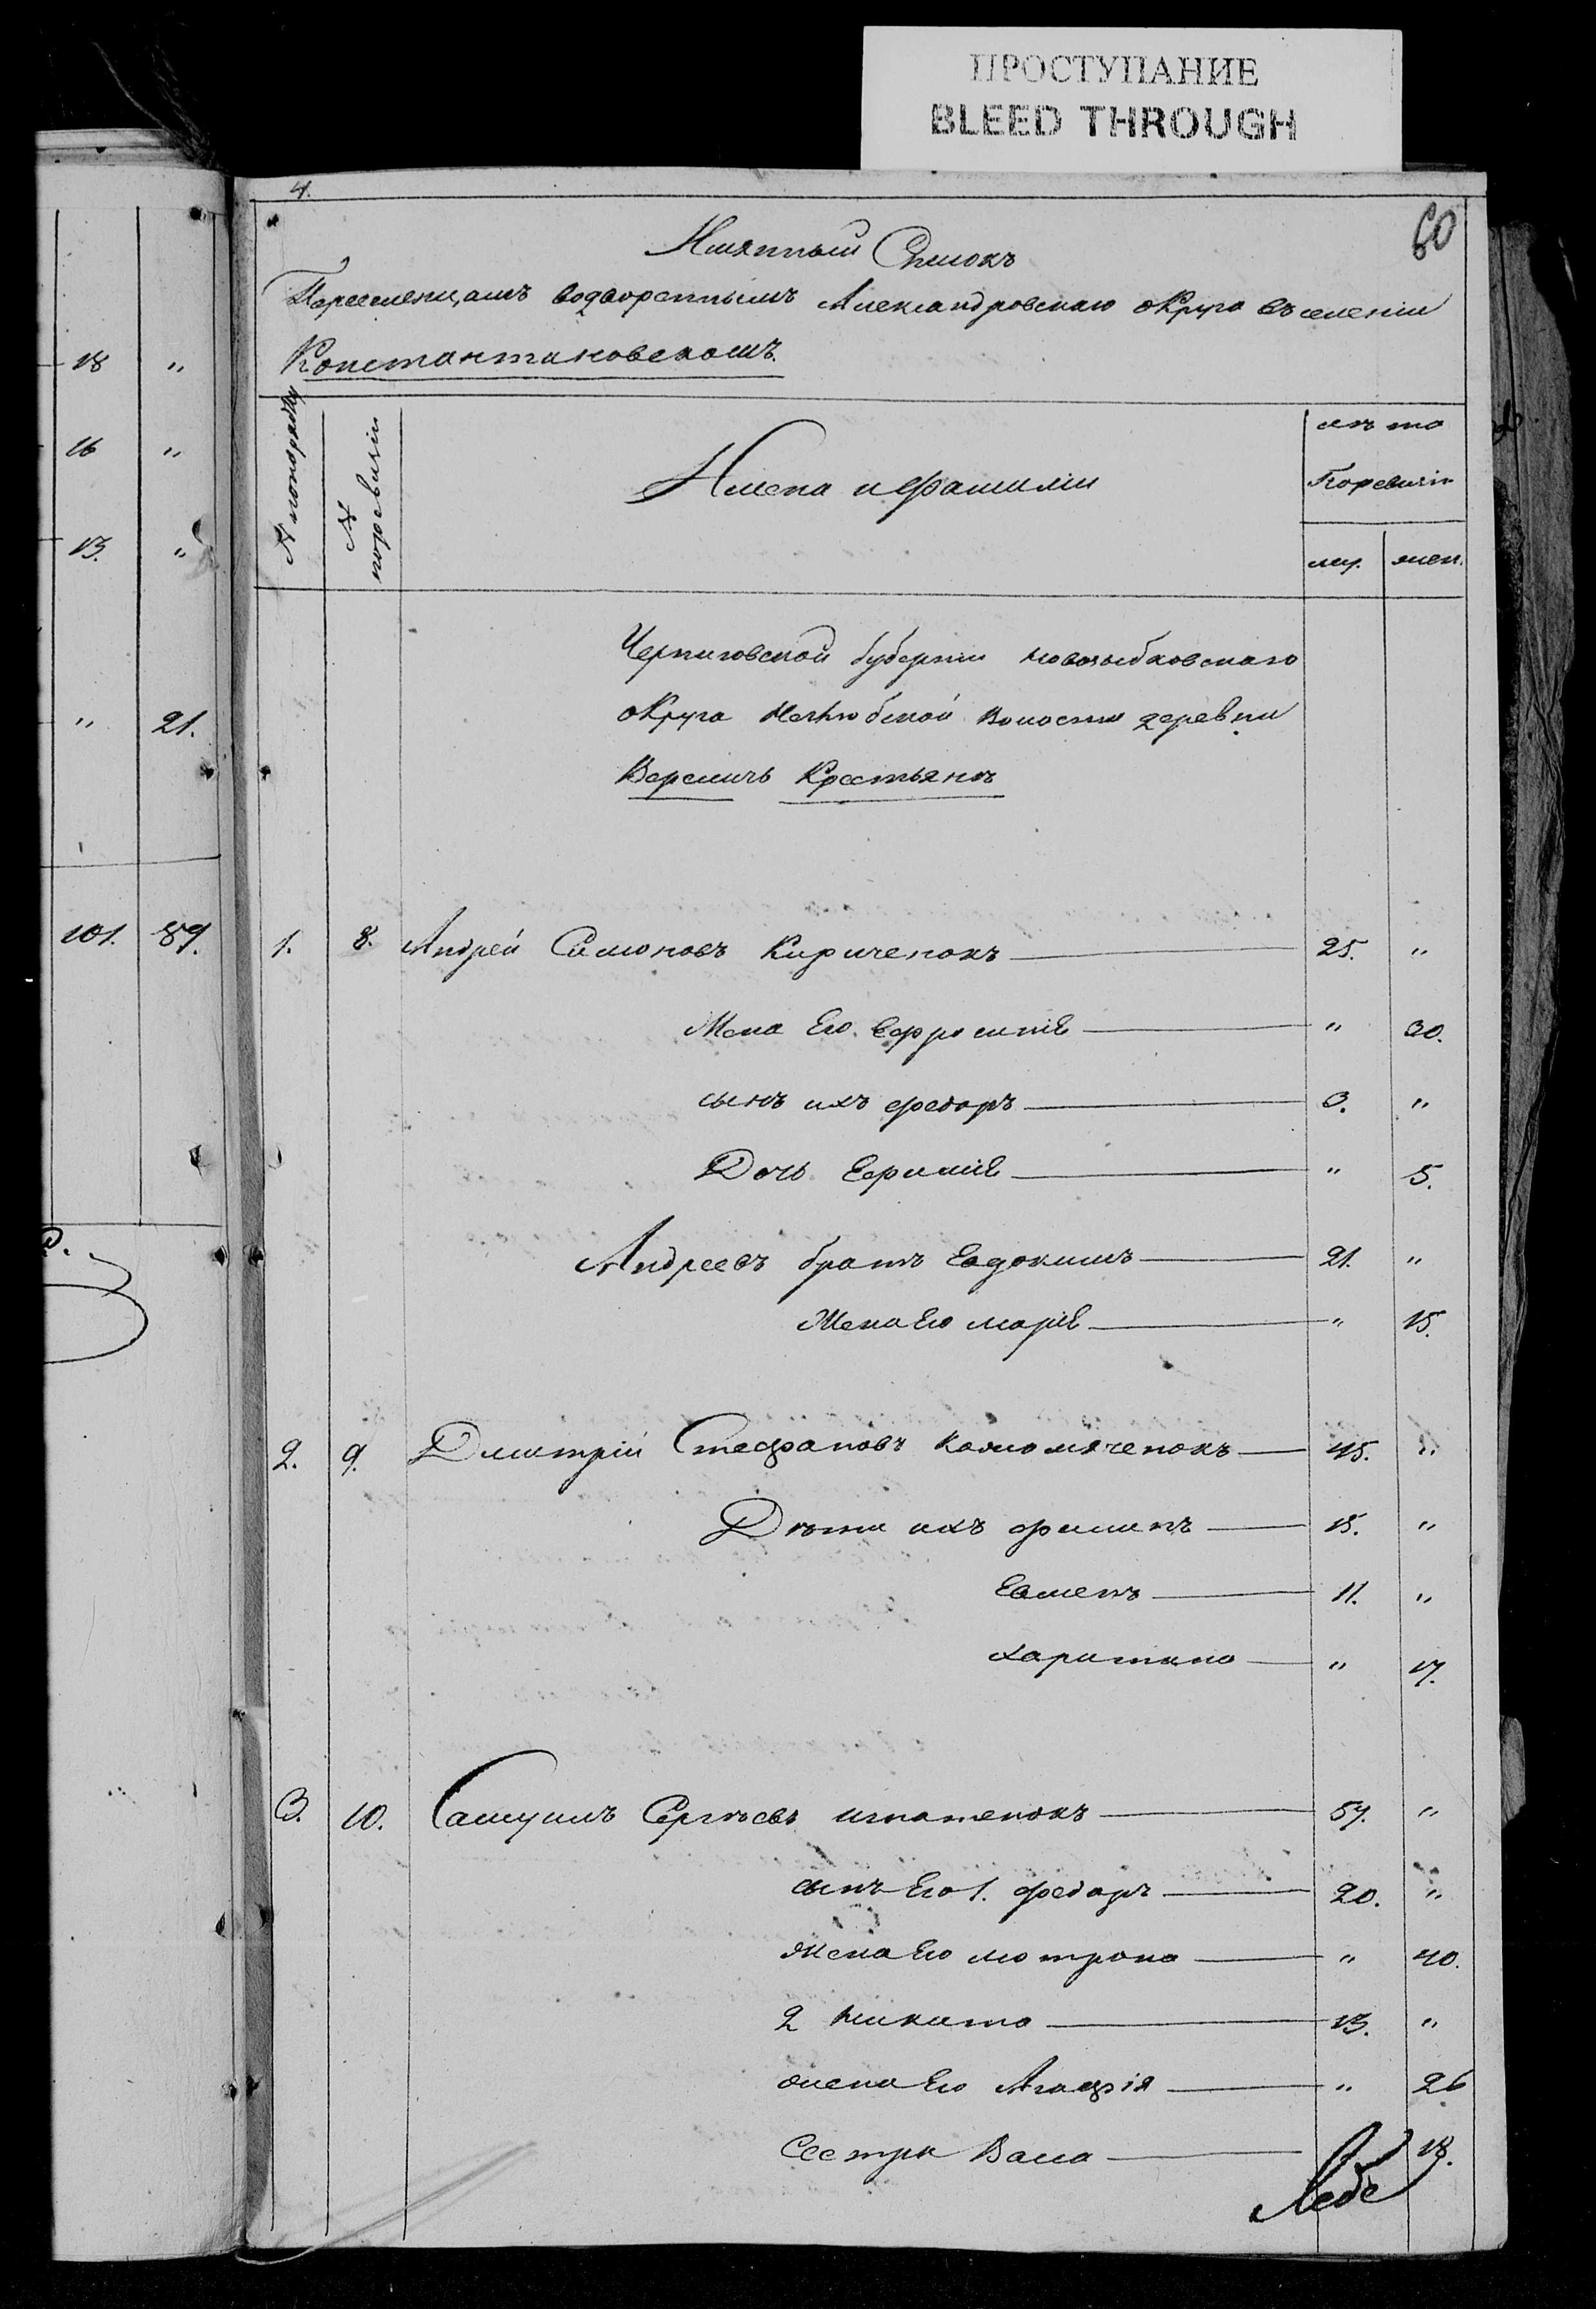 ПРОСТУПАНИЕ
BLEED THROUGH
4.
60
Имянный Списокъ
Переселенцамъ водвореннымъ Александровскаго округа въ селеніи
Константиновскомъ.
№ попорядку
№ поревизіи
Имена и фамиліи
лѣта
Поревизіи
муж.
жен.
Черниговской губерніи новозыбковскаго
округа Волости деревни
Крестьянъ
1. 8. Андрей Симоновъ Кириченокъ 25. "
Жена Его Ефросинія " 30.
сынъ ихъ федоръ 3. "
Дочь Ефимія " 5.
Андреевъ братъ Евдокимъ 21. "
Жена Его марія " 15.
2. 9. Дмитрій Стефановъ 45. "
Дѣти ихъ филипъ 15. "
Евменъ 11. "
харитина " 17.
3. 10. Самуилъ Сергѣевъ игнатенокъ 57. "
сынъ Его 1. федоръ 20. "
жена Его мотрона " 40.
2 никита 13. "
жена Его Агафія " 26
Сестра Васа 18.
18 "
16 "
13. "
" 21.
101. 89.